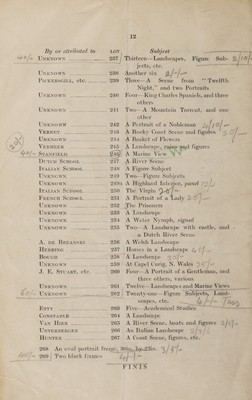 12
By or attributed to LOT Subject
UNKNOWN 237 Thirteen—Landscapes, Figure Subjects, etc.
UNKNOWN 238 Another six
PICKERSGILL, etc. 239 Three—A Scene from "Twelfth Night," and two Portraits
UNKNOWN 240 Four—King Charles Spaniels, and three others
UNKNOWN 241 Two—A Mountain Torrent, and one other
UNKNOWN 242 A Portrait of a Nobleman
VERNET 243 A Rocky Coast Scene and figures
UNKNOWN 244 A Basket of Flowers
VERMEER 245 A Landscape, ruins and figures
STANFIELD 246 A Marine View
DUTCH SCHOOL 247 A River Scene
ITALIAN SCHOOL 248 A Figure Subject
UNKNOWN 249 Two—Figure Subjects
UNKNOWN 249A A Highland Interior, panel
ITALIAN SCHOOL 250 The Virgin
FRENCH SCHOOL 251 A Portrait of a Lady
UNKNOWN 252 The Prisoners
UNKNOWN 253 A Landscape
UNKNOWN 254 A Water Nymph, signed
UNKNOWN 255 Two—A Landscape with castle, and a Dutch River Scene
A. DE BREANSKI 256 A Welsh Landscape
HERRING 257 Horses in a Landscape
BOUGH 258 A Landscape
UNKNOWN 259 At Capel Curig, N. Wales
J. E. STUART, etc. 260 Four—A Portrait of a Gentleman, and three others, various
UNKNOWN 261 Twelve—Landscapes and Marine Views
UNKNOWN 262 Twenty-one—Figure Subjects, Landscapes, etc.
ETTY 263 Five—Academical Studies
CONSTABLE 264 A Landscape
VAN HIER 265 A River Scene, boats and figures
UNTERBERGER 266 An Italian Landscape
HUNTER 267 A Coast Scene, figures, etc.
268 An oval portrait frame
269 Two black frames
FINIS